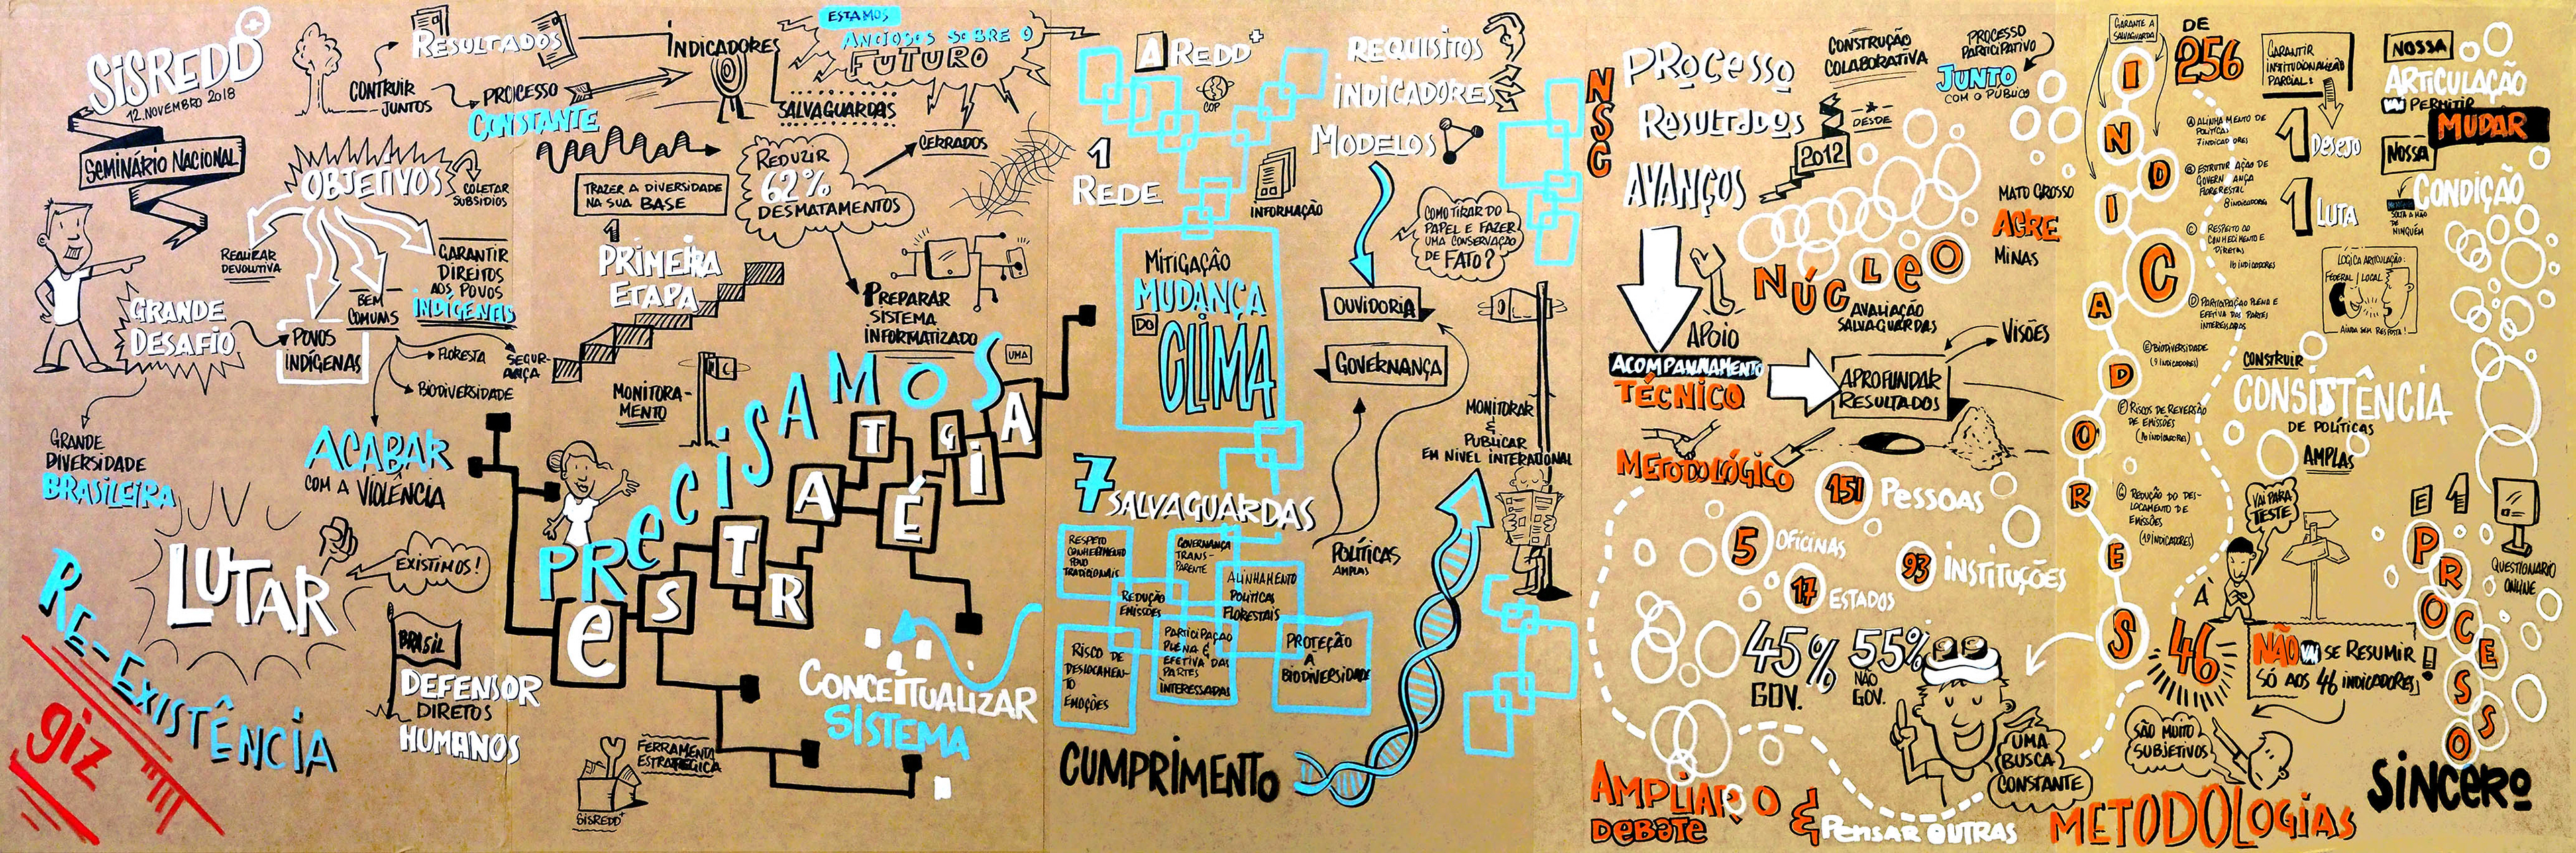 SISREDD+
12.NOVEMBRO 2018
SEMINÁRIO NACIONAL
RESULTADOS
CONTRUIR
JUNTOS
PROCESSO
CONSTANTE
INDICADORES
ESTAMOS
ANCIOSOS SOBRE O
FUTURO
SALVAGUARDAS
OBJETIVOS
COLETAR
SUBSIDIOS
REALIZAR
DEVOLUTIVA
BEM
COMUNS
GARANTIR
DIREITOS
AOS POVOS
INDÍGENAS
GRANDE
DESAFIO
POVOS
INDÍGENAS
FLORESTA
SEGUR-
ANÇA
BIODIVERSIDADE
GRANDE
DIVERSIDADE
BRASILEIRA
ACABAR
COM A VIOLÊNCIA
LUTAR
EXISTIMOS!
RE-EXISTÊNCIA
giz
BRASIL
DEFENSOR
DIRETOS
HUMANOS
TRAZER A DIVERSIDADE
NA SUA BASE
1
PRIMEIRA
ETAPA
REDUZIR
62%
DESMATAMENTOS
CERRADOS
PREPARAR
SISTEMA
INFORMATIZADO
MONITORA-
MENTO
PRECISAMOS
UMA
ESTRATÉGIA
CONCEITUALIZAR
SISTEMA
FERRAMENTA
ESTRATÉGICA
SISREDD+
A REDD+
COP
1
REDE
INFORMAÇÃO
MITIGAÇÃO
MUDANÇA
DO
CLIMA
7 SALVAGUARDAS
RESPETO
CONHECIMENTO
POVO
TRADICIONAIS
GOVERNANÇA
TRANS-
PARENTE
REDUÇÃO
EMISSÕES
ALINHAMENTO
POLÍTICAS
FLORESTAIS
RISCO DE
DESLOCAMEN-
TO
EMOÇÕES
PARTICIPAÇAO
PLENA E
EFETIVA DAS
PARTES
INTERESSADAS
PROTEÇÃO
A
BIODIVERSIDADE
CUMPRIMENTO
REQUISITOS
INDICADORES
MODELOS
COMO TIRAR DO
PAPEL E FAZER
UMA CONSERVAÇÃO
DE FATO?
OUVIDORIA
GOVERNANÇA
POLÍTICAS
AMPLAS
MONITORAR
&
PUBLICAR
EM NÍVEL INTERATIONAL
NSC
PROCESSO
RESULTADOS
AVANÇOS
CONSTRUÇÃO
COLABORATIVA
DESDE
2012
PROCESSO
PARTICIPATIVO
JUNTO
COM O PÚBLICO
MATO GROSSO
ACRE
MINAS
NÚCLEO
AVALIAÇÃO
SALVAGUARDAS
APOIO
ACOMPANHAMENTO
TÉCNICO
APROFUNDAR
RESULTADOS
VISÕES
METODOLÓGICO
151 PESSOAS
5 OFICINAS
93 INSTITUÇÕES
17 ESTADOS
45% GOV.
55% NÃO GOV.
UMA
BUSCA
CONSTANTE
AMPLIAR O
DEBATE
& PENSAR OUTRAS
METODOLOGIAS
GARANTE A
SALVAGUARDA
INDICADORES
DE
256
Ⓐ ALINHAMENTO DE
POLÍTICAS
7 INDICADORES
Ⓑ ESTRUTURAÇÃO DE
GOVERNANÇA
FLORERESTAL
8 INDICADORES
Ⓒ RESPEITO AO
CONHECIMENTO E
DIRETAS
16 INDICADORES
Ⓓ PARTICIPAÇÃO PLENA E
EFETIVA DAS PARTES
INTERESSADAS
Ⓔ BIODIVERSIDADE
(9 INDICADORES)
Ⓕ RISCOS DE REVERSÃO
DE EMISSÕES
(10 INDICADORES)
Ⓖ REDUÇÃO DO DES-
LOCAMENTO DE
EMISSÕES
GARANTIR
INSTITUCIONALIZAÇÃO
PARCIAL:
1 DESEJO
1 LUTA
LOGICA ARTICULAÇÃO:
FEDERAL / LOCAL
AINDA SEM RESPOSTA!
CONSTRUIR
CONSISTÊNCIA
DE POLÍTICAS
AMPLAS
VAI PARA
TESTE
À
46
NÃO VAI SE RESUMIR
SÓ AOS 46 INDICADORES!
SÃO MUITO
SUBJETIVOS
NOSSA
ARTICULAÇÃO
VAI PERMITIR
MUDAR
NOSSA
CONDIÇÃO
SOLTA A MÃO
DE
NINGUÉM
E 1
PROCESSO
SINCERO
QUESTIONÁRIO
ONLINE